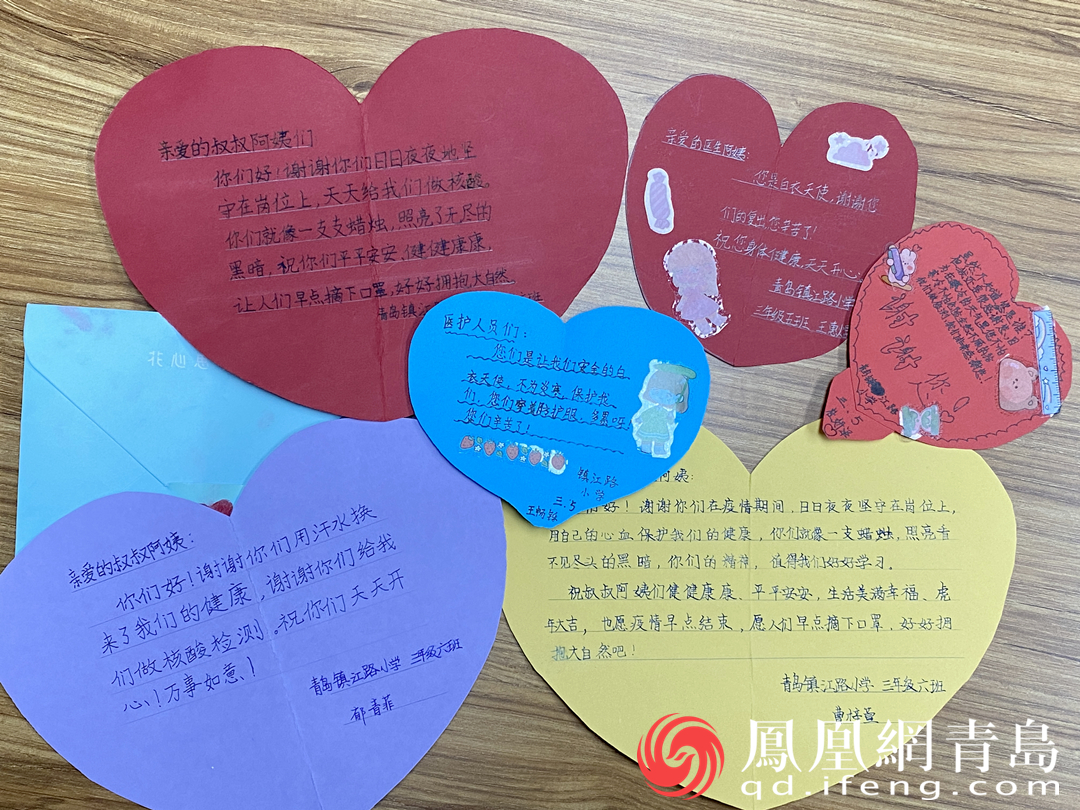 亲爱的叔叔阿姨们
你们好！谢谢你们日日夜夜地坚
守在岗位上，天天给我们做核酸。
你们就像一支支蜡烛，照亮了无尽的
黑暗，祝你们平平安安，健健康康，
让人们早点摘下口罩，好好拥抱大自然。
青岛镇江
班
亲爱的医生阿姨：
您是白衣天使，谢谢您
们的付出，您辛苦了！
祝您身体健康，天天开心。
青岛镇江路小学
三年级五班 王惠
谢谢
您
三.5
医护人员们：
您们是让我们安全的白
衣天使，不为炎寒，保护我
们，您们穿着防护服，多累呀！
您们辛苦了！
镇江路
小学
三.5
亲爱的叔叔阿姨：
你们好！谢谢你们用汗水换
来了我们的健康，谢谢你们给我
们做核酸检测。祝你们天天开
心！万事如意！
青岛镇江路小学 三年级六班
郁香菲
阿姨：
们好！谢谢你们在疫情期间，日日夜夜坚守在岗位上，
用自己的心血保护我们的健康，你们就像一支蜡烛，照亮着
不见尽头的黑暗，你们的精神，值得我们好好学习。
祝叔叔阿姨们健健康康、平平安安，生活美满幸福、虎
年大吉，也愿疫情早点结束，愿人们早点摘下口罩，好好拥
抱大自然吧！
青岛镇江路小学 三年级六班
鳳凰網青島
qd.ifeng.com